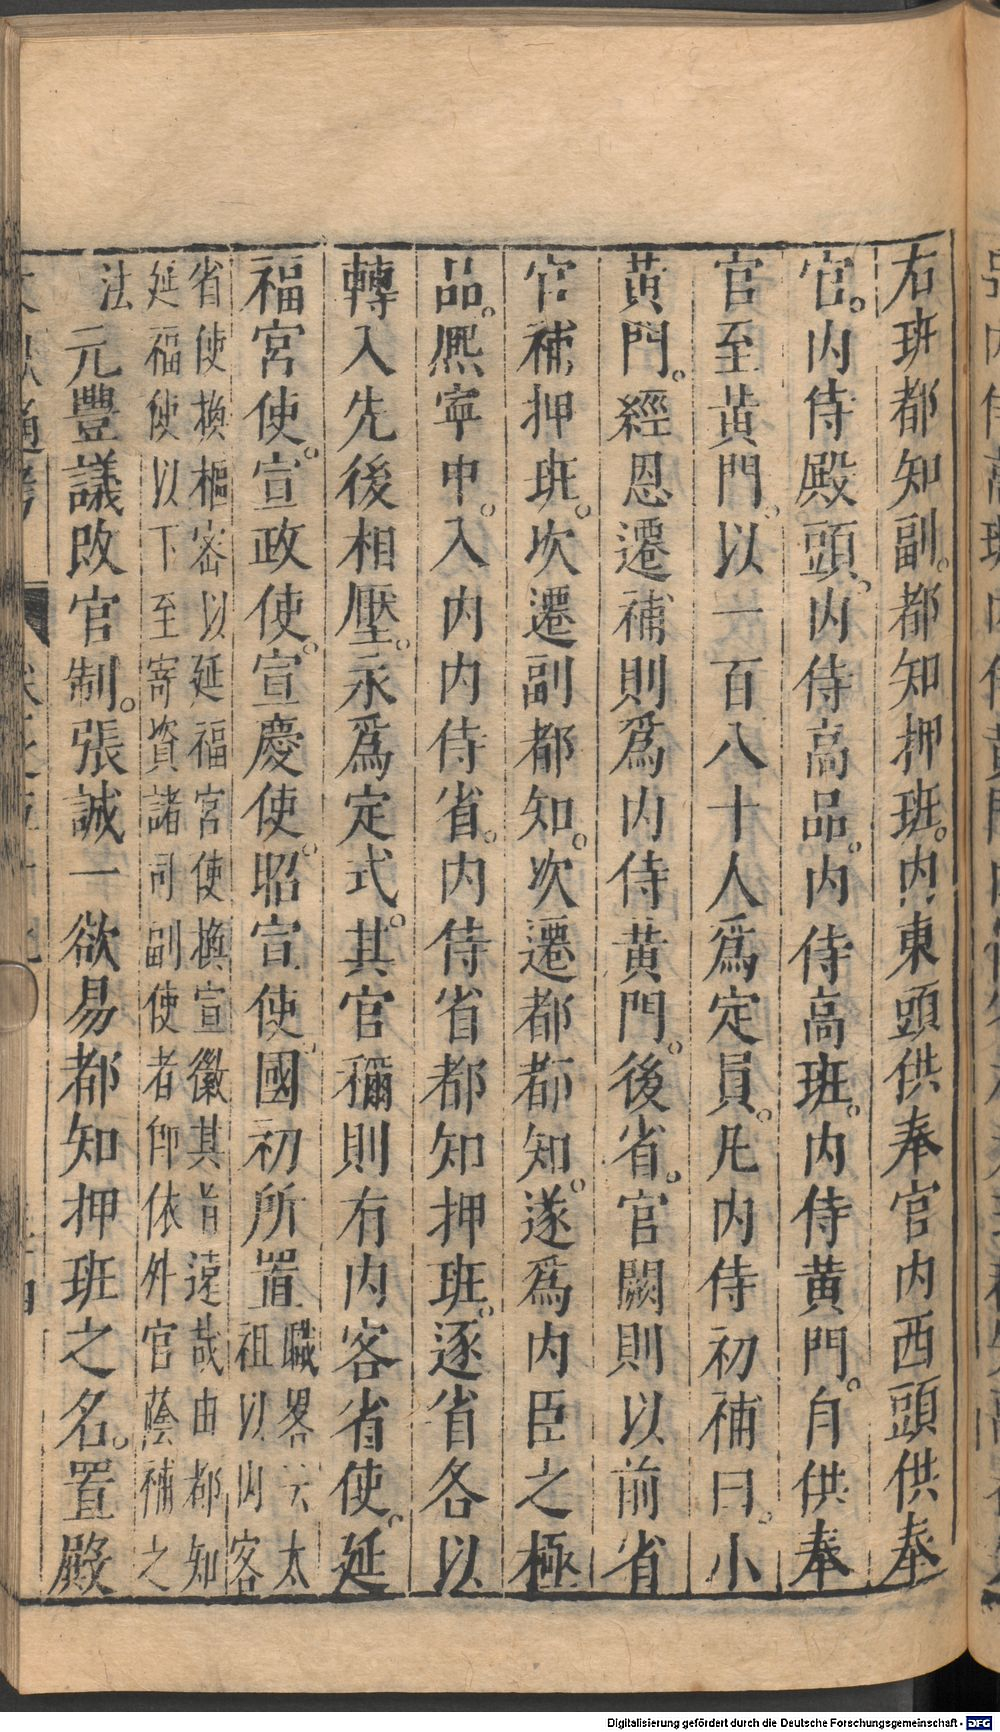 右班都知副。都知押班。内東頭供奉官内西頭供奉
官。内侍殿頭。内侍高品。内侍高班。内侍黄門。自供奉
官至黄門。以一百八十人爲定員。凡内侍初補曰。小
黄門。經恩遷補則爲内侍黄門。後省。官闕則以前省
官補押班。次遷副都知。次遷都都知。遂爲内臣之極
品。熙寧中。入内内侍省。内侍省都知押班。逐省各以
轉入先後相壓。永爲定式。其官稱則有内客省使。延
福宮使。宣政使。宣慶使。昭宣使。國初所置職畧云太
祖以内客
省使換樞密以延福宮使換宣徽其旨遠哉由都知
延福使以下至寄資諸司副使者卽依外官蔭補之
法元豐議改官制。張誠一欲易都知押班之名。置殿
Digitalisierung gefördert durch die Deutsche Forschungsgemeinschaft - DFG